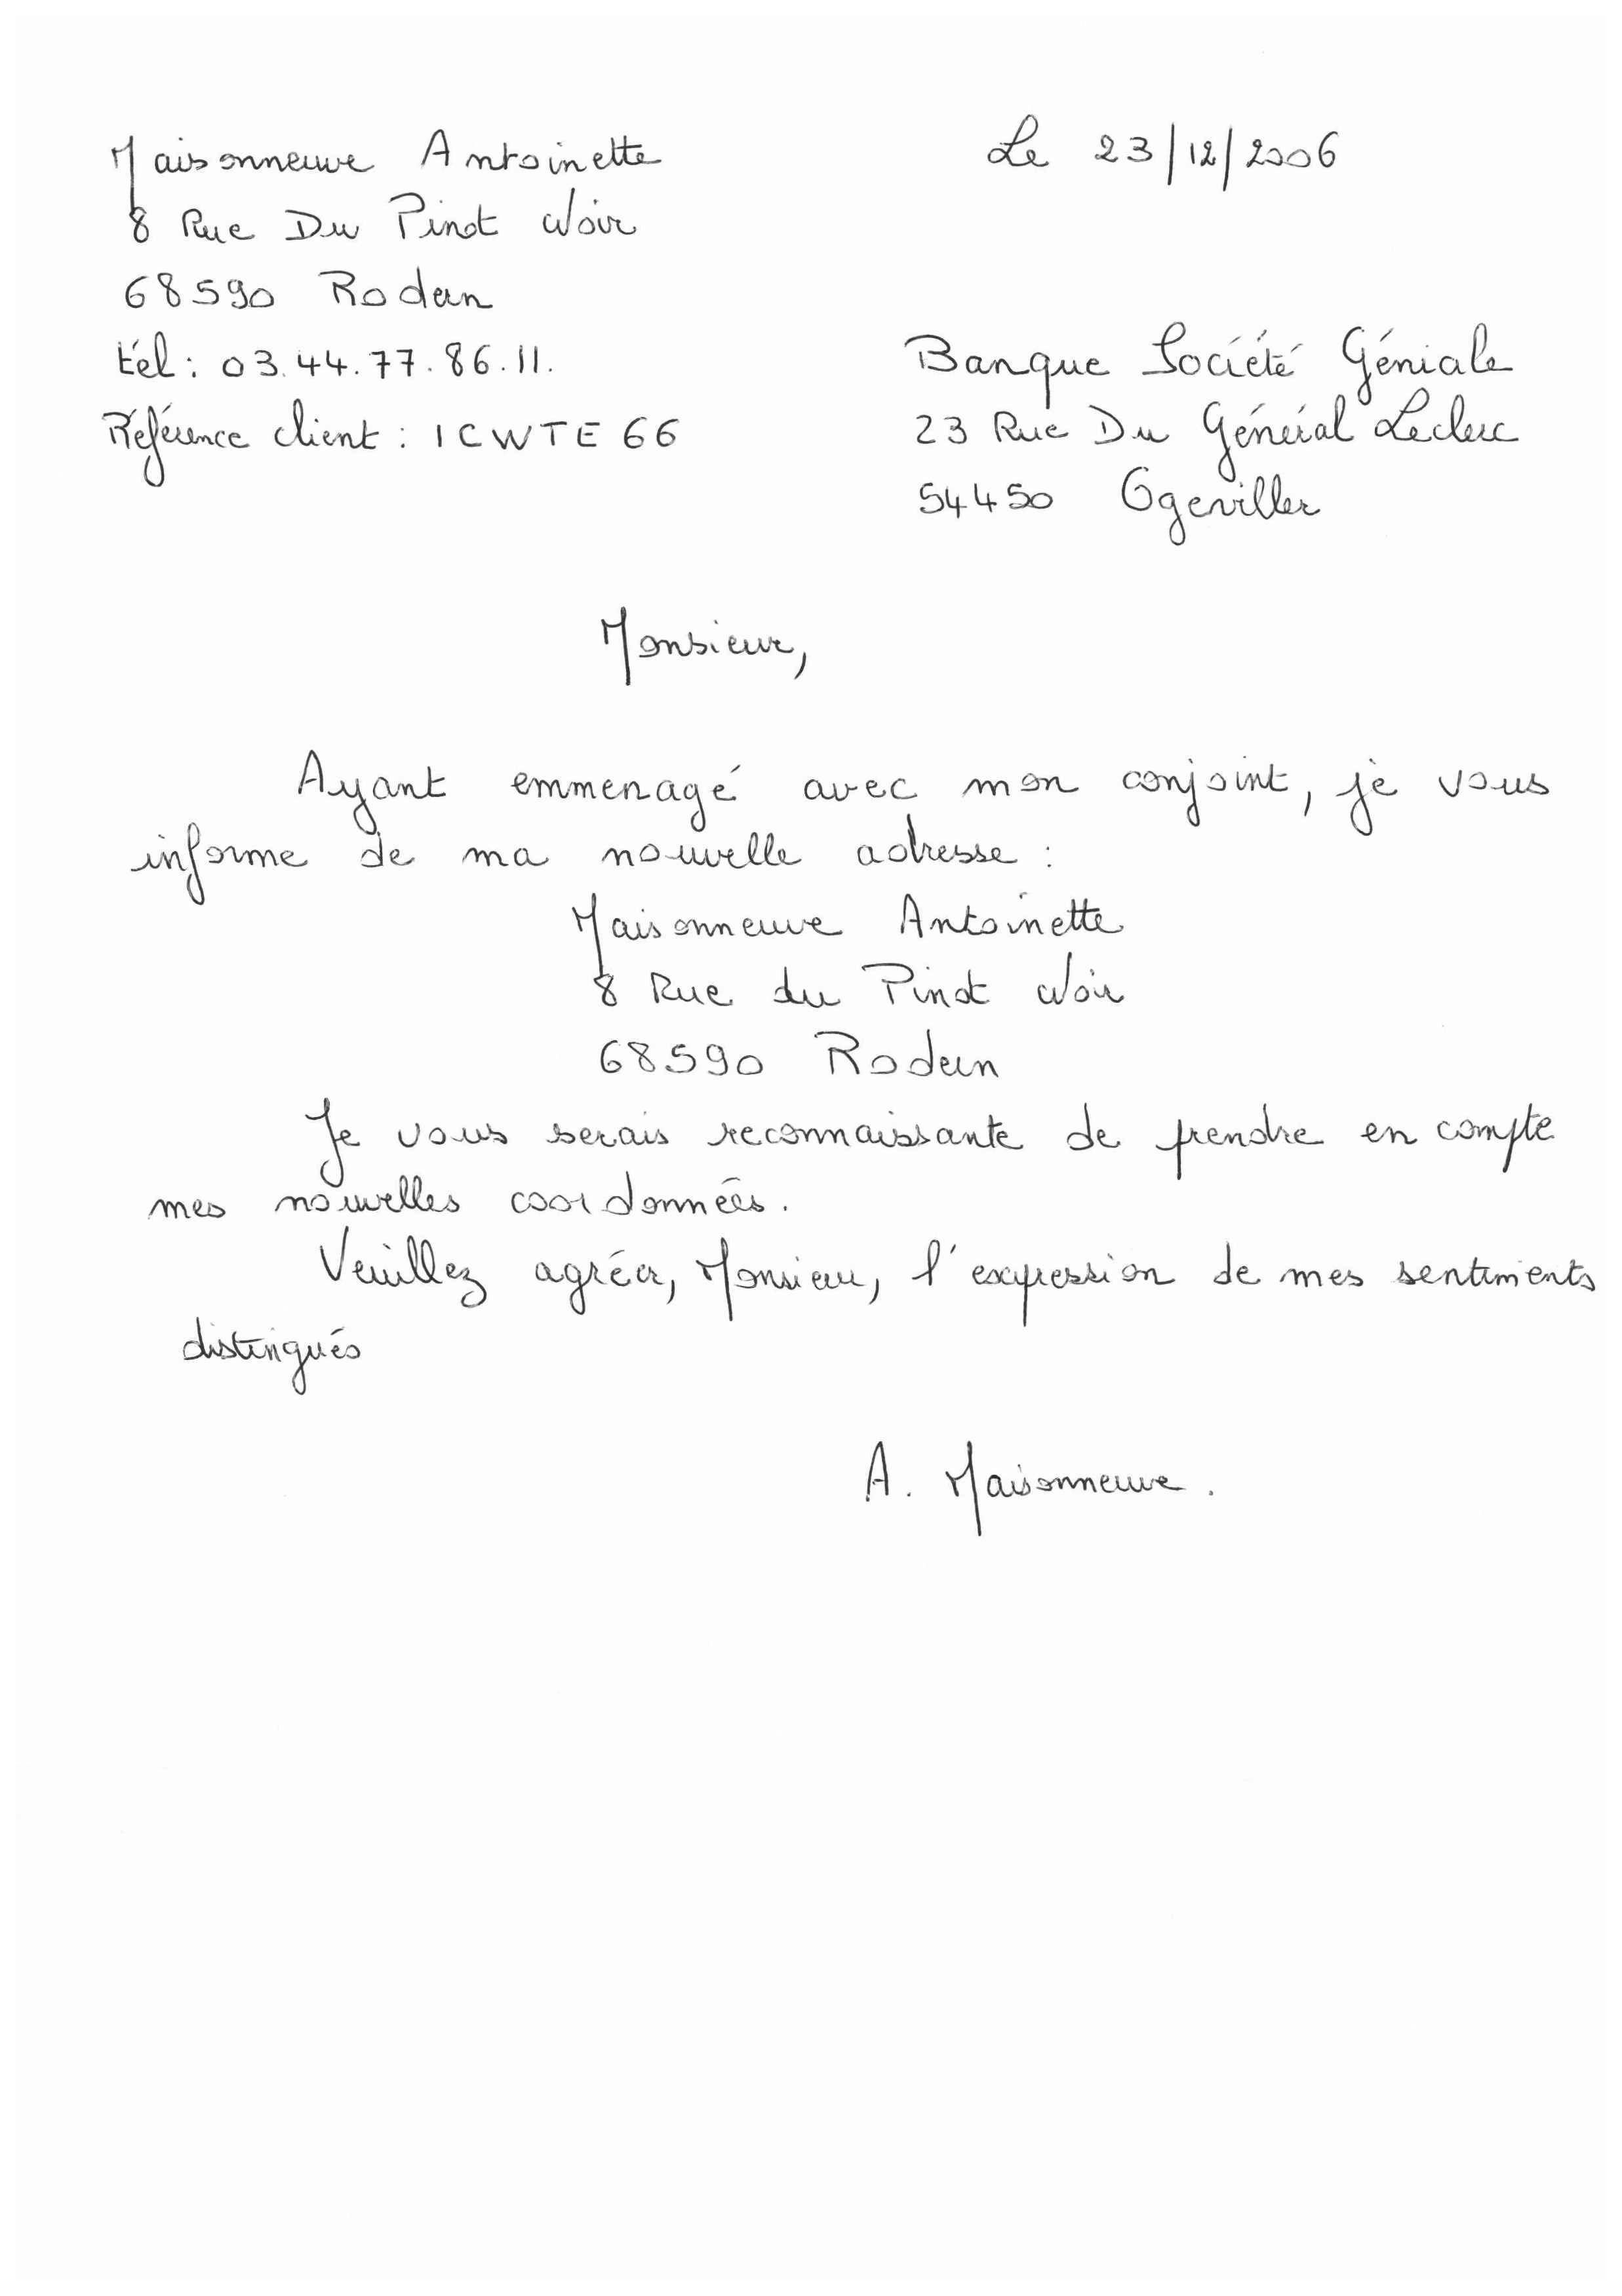 Maisonneuve Antoinette
Le 23/12/2006
8 Rue Du Pinot Noir
68590 Rodern
tél : 03.44.77.86.11.
Référence client : ICWTE 66
Banque Société Géniale
23 Rue Du Général Leclerc
54450 Ogeviller
Monsieur,
Ayant emmenagé avec mon conjoint, je vous
informe de ma nouvelle adresse :
Maisonneuve Antoinette
8 Rue du Pinot Noir
68590 Rodern
Je vous serais reconnaissante de prendre en compte
mes nouvelles coordonnées.
Veuillez agréer, Monsieur, l'expression de mes sentiments
distingués
A. Maisonneuve.